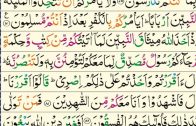 النَّبِيّٖنَ اَرْبَابًا ؕ اَيَاْمُرُكُمْ بِالْكُفْرِ بَعْدَ اِذْ اَنْتُمْ مُّسْلِمُوْنَ
اَخَذَ اللّٰهُ مِيْثَاقَ النَّبِيّٖنَ لَمَاۤ اٰتَيْتُكُمْ مِّنْ كِتٰبٍ وَّحِكْمَةٍ
جَآءَكُمْ رَسُوْلٌ مُّصَدِّقٌ لِّمَا مَعَكُمْ لَتُؤْمِنُنَّ بِهٖ وَلَتَنْصُرُنَّهٗ
ءَاَقْرَرْتُمْ وَاَخَذْتُمْ عَلٰى ذٰلِكُمْ اِصْرِيْ ؕ قَالُوْۤا اَقْرَرْنَا
فَاشْهَدُوْا وَاَنَا مَعَكُمْ مِّنَ الشّٰهِدِيْنَ فَمَنْ تَوَلّٰى